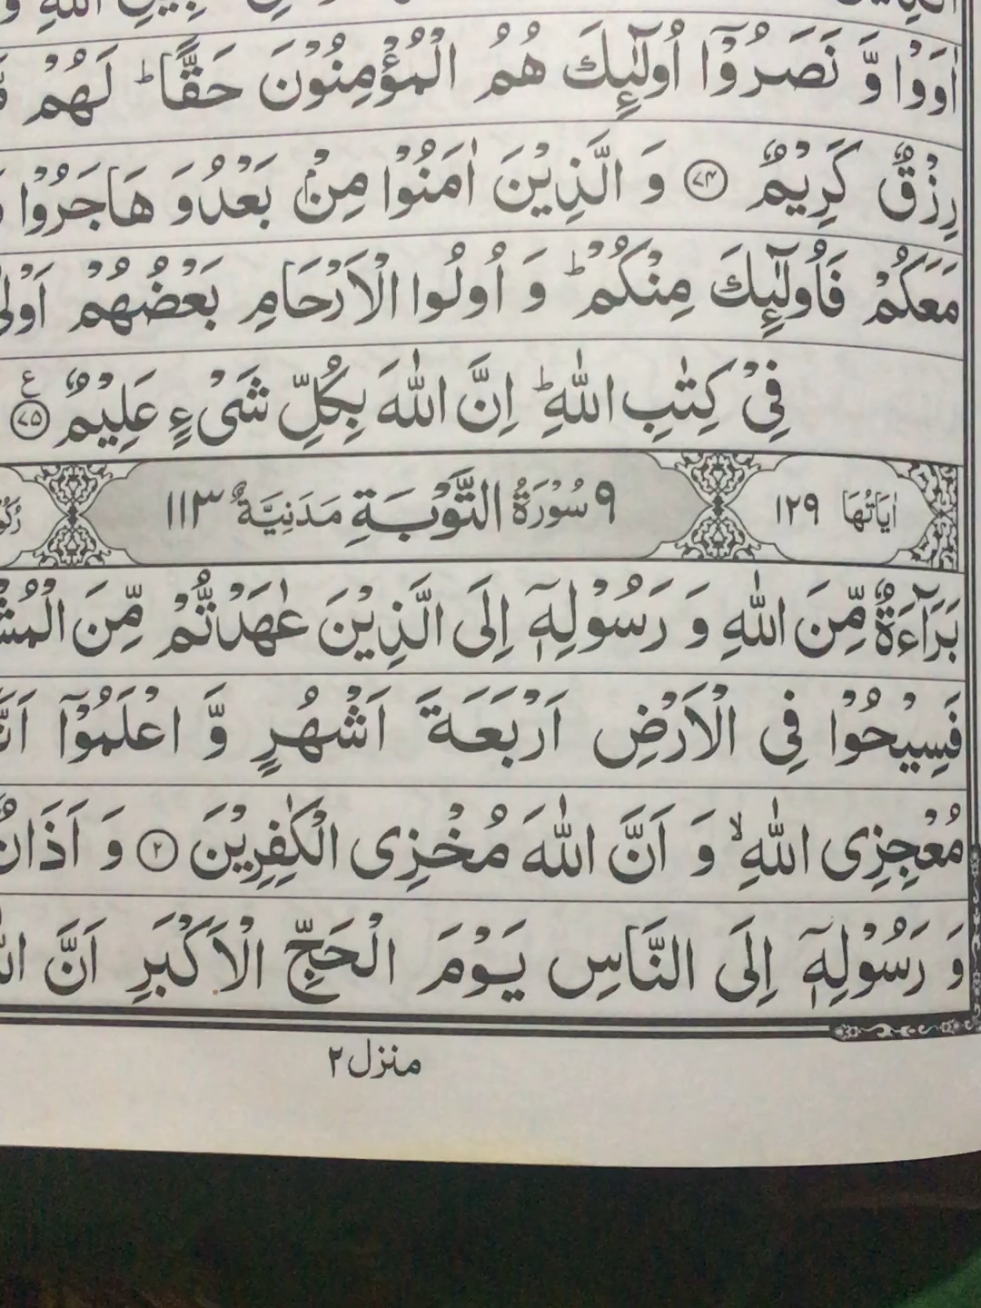 اٰوَوْا وَّ نَصَرُوْۤا اُولٰٓئِكَ هُمُ الْمُؤْمِنُوْنَ حَقًّا ؕ لَهُمْ
رِزْقٌ كَرِیْمٌ ﴿۷۴﴾ وَ الَّذِیْنَ اٰمَنُوْا مِنْۢ بَعْدُ وَ هَاجَرُوْا
مَعَكُمْ فَاُولٰٓئِكَ مِنْكُمْ ؕ وَ اُولُوا الْاَرْحَامِ بَعْضُهُمْ
فِیْ كِتٰبِ اللّٰهِ ؕ اِنَّ اللّٰهَ بِكُلِّ شَیْءٍ عَلِیْمٌ ﴿۷۵﴾ ع
اٰیَاتُهَا ۱۲۹ ۹ سُوْرَةُ التَّوْبَةِ مَدَنِیَّةٌ ۱۱۳
بَرَآءَةٌ مِّنَ اللّٰهِ وَ رَسُوْلِهٖۤ اِلَی الَّذِیْنَ عٰهَدْتُّمْ مِّنَ
فَسِیْحُوْا فِی الْاَرْضِ اَرْبَعَةَ اَشْهُرٍ وَّ اعْلَمُوْۤا
مُعْجِزِی اللّٰهِ ۙ وَ اَنَّ اللّٰهَ مُخْزِی الْكٰفِرِیْنَ ﴿۲﴾ وَ
وَ رَسُوْلِهٖۤ اِلَی النَّاسِ یَوْمَ الْحَجِّ الْاَكْبَرِ اَنَّ
منزل ۲